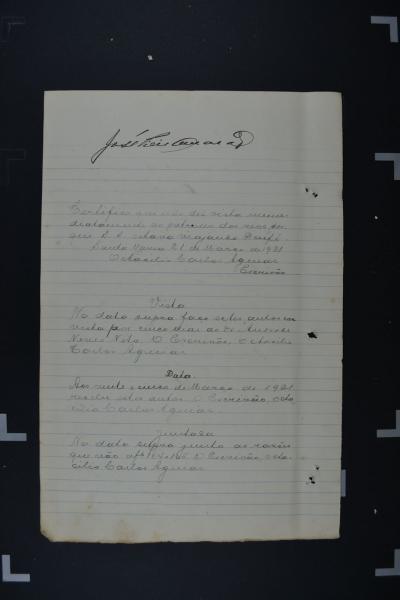 José Luis
Certifico que não dei vista imme-
diatamente ao patrono dos
que
Santa Maria 21 de Março de 1921
Octacilio Carlos Aguiar
Escrivão
Vista
Na data supra faço estes autos com
vista por cinco dias ao Dr.
Neves Neto. O Escrivão, Octacilio
Carlos Aguiar
Data
Aos vinte e cinco de Março de 1921
recebi estes autos. O Escrivão, Octa-
cilio Carlos Aguiar
Juntada
Na data supra junto as razões
que vão O Escrivão, Octa-
cilio Carlos Aguiar